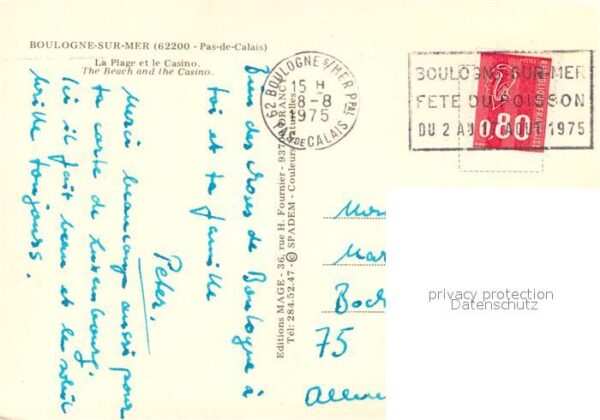 BOULOGNE-SUR-MER (62200 - Pas-de-Calais)
La Plage et le Casino.
The Beach and the Casino.
62 BOULOGNE S/MER PPAL
15 H
8-8
1975
PAS DE CALAIS
BOULOGNE-SUR-MER
FETE DU POISSON
DU 2 AU 17 AOUT 1975
REPUBLIQUE FRANCAISE
0,80
Bien des choses de Boulogne à
toi et ta famille
Peter.
Merci beaucoup aussi pour
ta carte de Luxembourg.
Ici il fait beau et le soleil
brille toujours.
Editions MAGE - 36, rue H. Fournier - 937
Tél: 284.52.47 - © SPADEM - Couleurs naturelles
Mon
Mar
Boch
75
Allem
privacy protection
Datenschutz